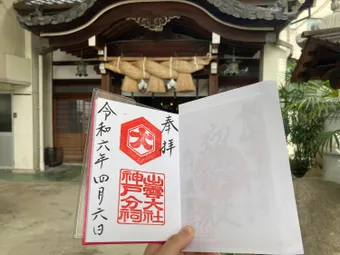 奉拝
大
出雲大社
神戸分祠
令和六年四月六日